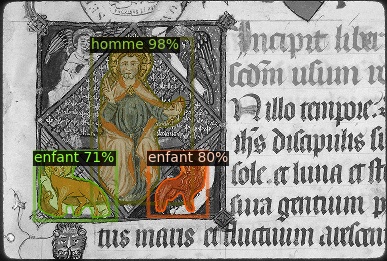 homme 98%
enfant 71%
enfant 80%
Incipit liber
scdm usum r
N illo tempore:
ihs discipulis s
sole et luna et st
sura gentium p
tus maris et fluctuum